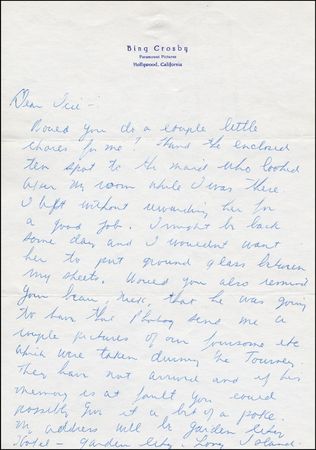 Bing Crosby
Paramount Pictures
Hollywood, California
Dear
Would you do a couple little
chores for me? Hand the enclosed
ten spot to the maid who looked
after my room while I was there
I left without rewarding her for
a good job. I might be back
some day and I wouldn't want
her to put ground glass between
my sheets. Would you also remind
your beau, Nick, that he was going
to have the Photog send me a
couple pictures of our foursome etc
which were taken during the Tourney.
They have not arrived and if his
memory is at fault you could
possibly give it a bit of a poke.
My address will be Garden City
Hotel - Garden City, Long Island.